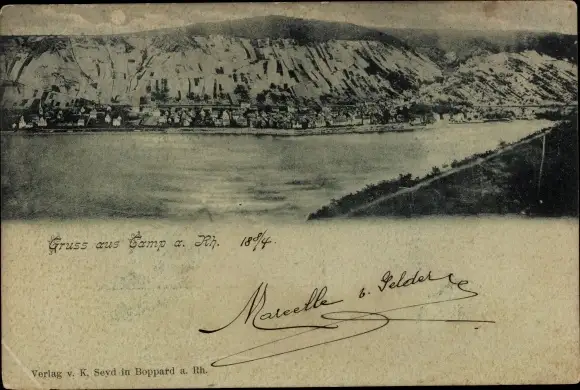 Gruss aus Camp a. Rh. 18 8/4
Marcelle v. Gelder
Verlag v. K. Seyd in Boppard a. Rh.